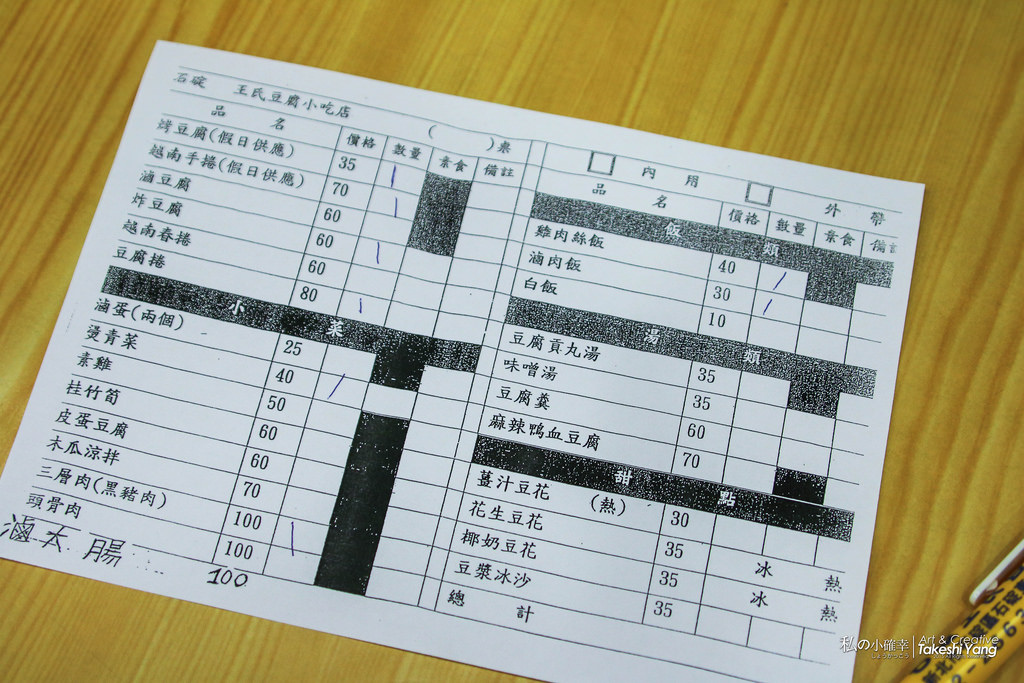 石碇 王氏豆腐小吃店 ( )桌
品 名 價格 數量 素食 備註
烤豆腐(假日供應) 35
越南手捲(假日供應) 70
滷豆腐 60
炸豆腐 60
越南春捲 60
豆腐捲 80
小 菜
滷蛋(兩個) 25
燙青菜 40
素雞 50
桂竹筍 60
皮蛋豆腐 60
木瓜涼拌 70
三層肉(黑豬肉) 100
頭骨肉 100
滷大腸 100
內 用 外 帶
品 名 價格 數量 素食 備註
飯 類
雞肉絲飯 40
滷肉飯 30
白飯 10
湯 類
豆腐貢丸湯 35
味噌湯 35
豆腐羹 60
麻辣鴨血豆腐 70
甜 點
薑汁豆花 (熱) 30
花生豆花 35 冰 熱
椰奶豆花 35 冰 熱
豆漿冰沙 35
總 計
私の小確幸 Art & Creative
Takeshi Yang